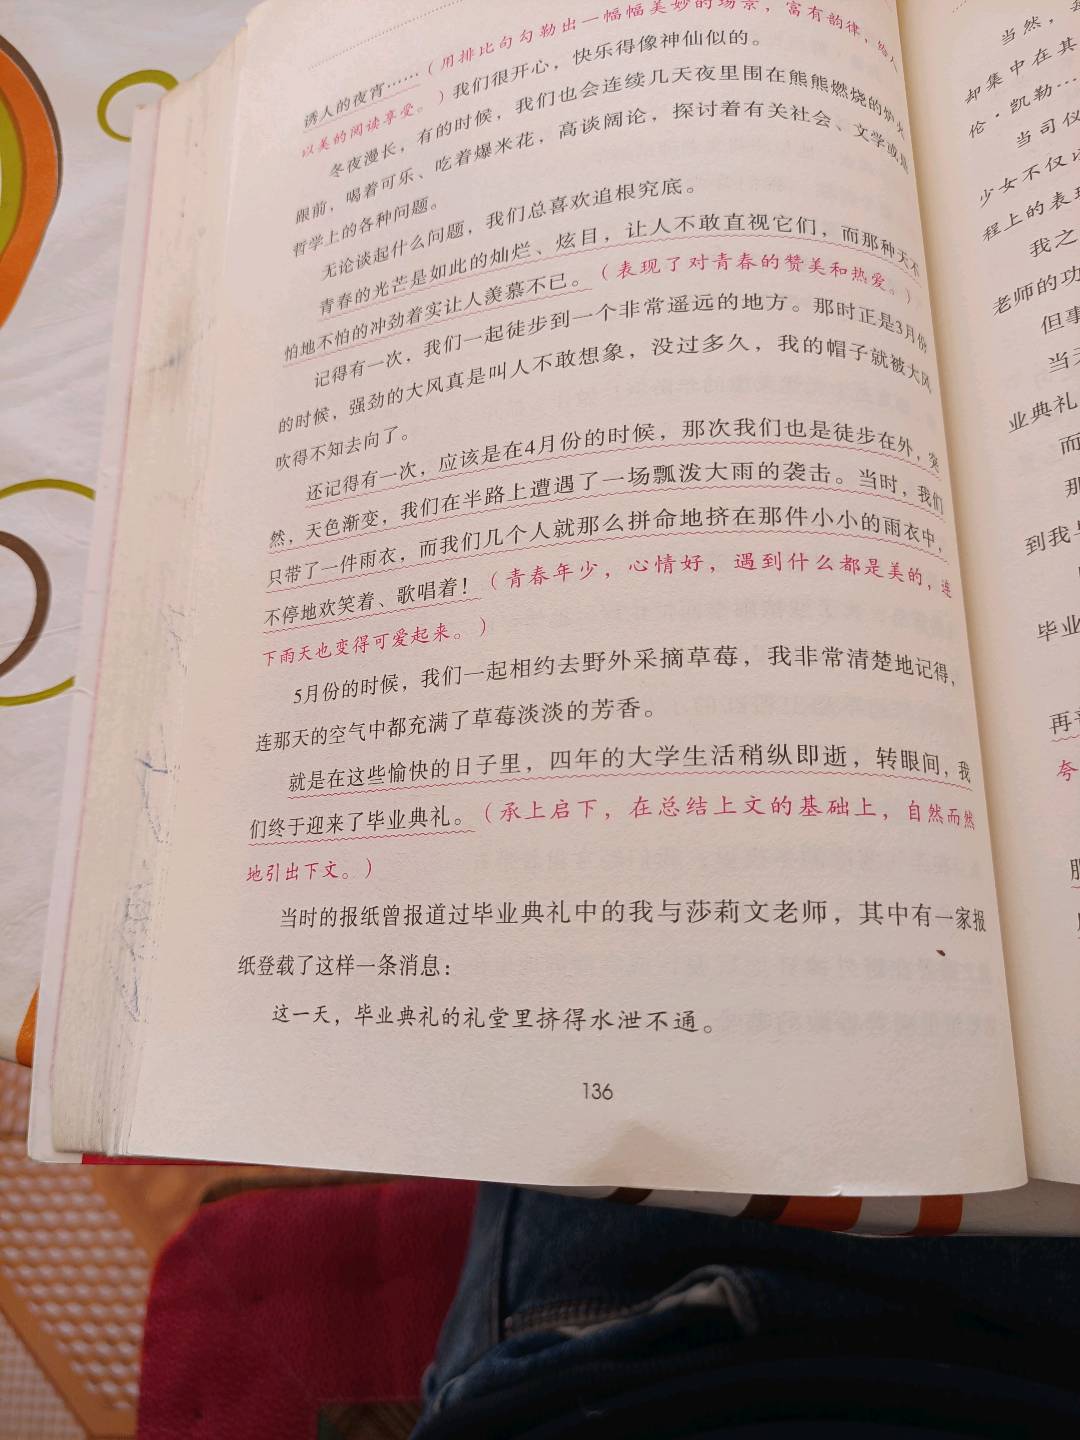 诱人的夜宵……（用排比句勾勒出一幅幅美妙的场景，富有韵律，给人
以美的阅读享受。）我们很开心，快乐得像神仙似的。
冬夜漫长，有的时候，我们也会连续几天夜里围在熊熊燃烧的炉火
眼前，喝着可乐、吃着爆米花，高谈阔论，探讨着有关社会、文学或是
哲学上的各种问题。
无论谈起什么问题，我们总喜欢追根究底。
青春的光芒是如此的灿烂、炫目，让人不敢直视它们，而那种天不
怕地不怕的冲劲着实让人羡慕不已。（表现了对青春的赞美和热爱。）
记得有一次，我们一起徒步到一个非常遥远的地方。那时正是3月份
的时候，强劲的大风真是叫人不敢想象，没过多久，我的帽子就被大风
吹得不知去向了。
还记得有一次，应该是在4月份的时候，那次我们也是徒步在外，突
然，天色渐变，我们在半路上遭遇了一场瓢泼大雨的袭击。当时，我们
只带了一件雨衣，而我们几个人就那么拼命地挤在那件小小的雨衣中，
不停地欢笑着、歌唱着！（青春年少，心情好，遇到什么都是美的，连
下雨天也变得可爱起来。）
5月份的时候，我们一起相约去野外采摘草莓，我非常清楚地记得，
连那天的空气中都充满了草莓淡淡的芳香。
就是在这些愉快的日子里，四年的大学生活稍纵即逝，转眼间，我
们终于迎来了毕业典礼。（承上启下，在总结上文的基础上，自然而然
地引出下文。）
当时的报纸曾报道过毕业典礼中的我与莎莉文老师，其中有一家报
纸登载了这样一条消息：
这一天，毕业典礼的礼堂里挤得水泄不通。
136
当然，
却集中在其
伦·凯勒…
当司仪
少女不仅
程上的表现
我之
老师的功
但事
当天
业典礼
而
那
到我与
毕业
再
夸